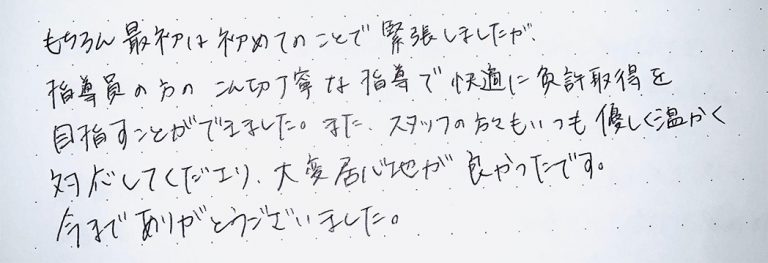 もちろん最初は初めてのことで緊張しましたが、
指導員の方のこん切丁寧な指導で快適に免許取得を
目指すことができました。また、スタッフの方々もいつも優しく温かく
対応してくださり、大変居心地が良かったです。
今までありがとうございました。